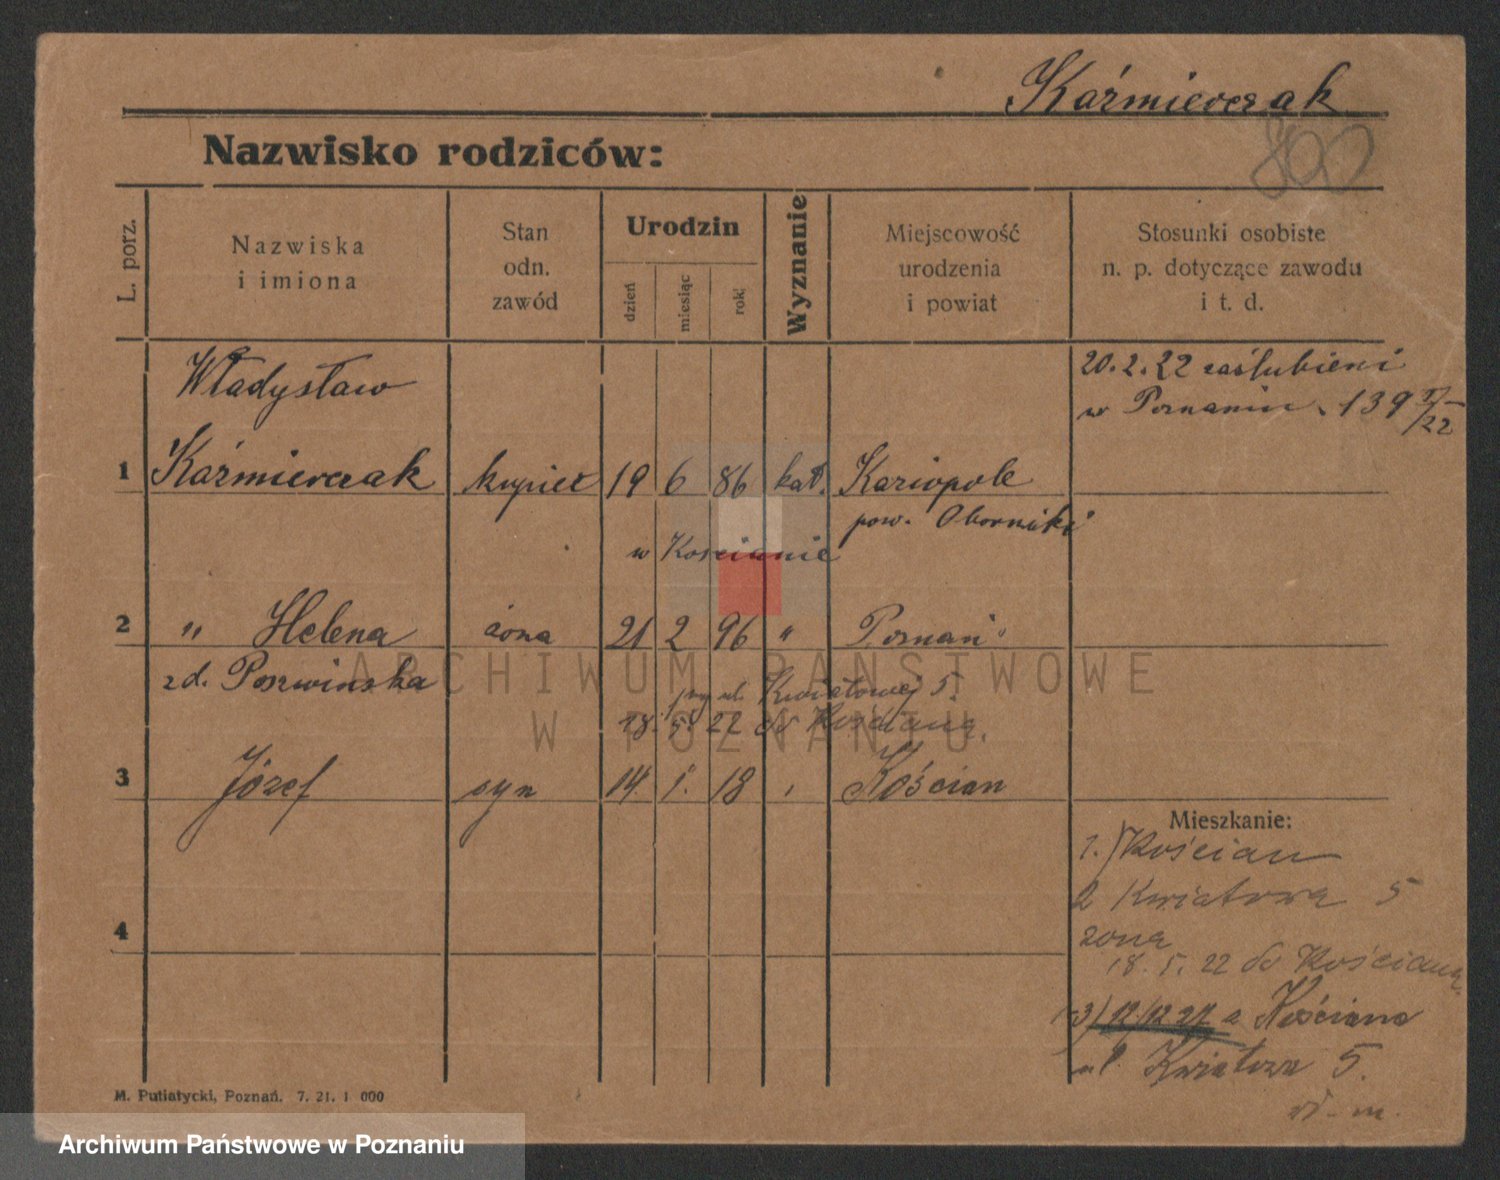 Kaźmierczak
800
Nazwisko rodziców:
L. porz.
Nazwiska
i imiona
Stan
odn.
zawód
Urodzin
dzień
miesiąc
rok
Wyznanie
Miejscowość
urodzenia
i powiat
Stosunki osobiste
n. p. dotyczące zawodu
i t. d.
Władysław
20. 2. 22 zaślubieni
w Poznaniu 139 /22
1 Kaźmierczak kupiec 19 6 86 kat. Kaziopole
pow. Oborniki
w Kościanie
2 " Helena żona 21 2 96 " Poznań
zd. Poswińska
ul. Kwiatowej 5.
18. 5. 22 do Kościana.
3 Józef syn 14 1. 18 Kościan
Mieszkanie:
1.) Kościan
2 Kwiatowa 5
żona
18. 5. 22 do Kościana
3) 12/12 27 z Kościana
ul. Kwiatowa 5.
4
M. Putiatycki, Poznań. 7. 21. 1 000
ARCHIWUM PAŃSTWOWE
W POZNANIU
Archiwum Państwowe w Poznaniu